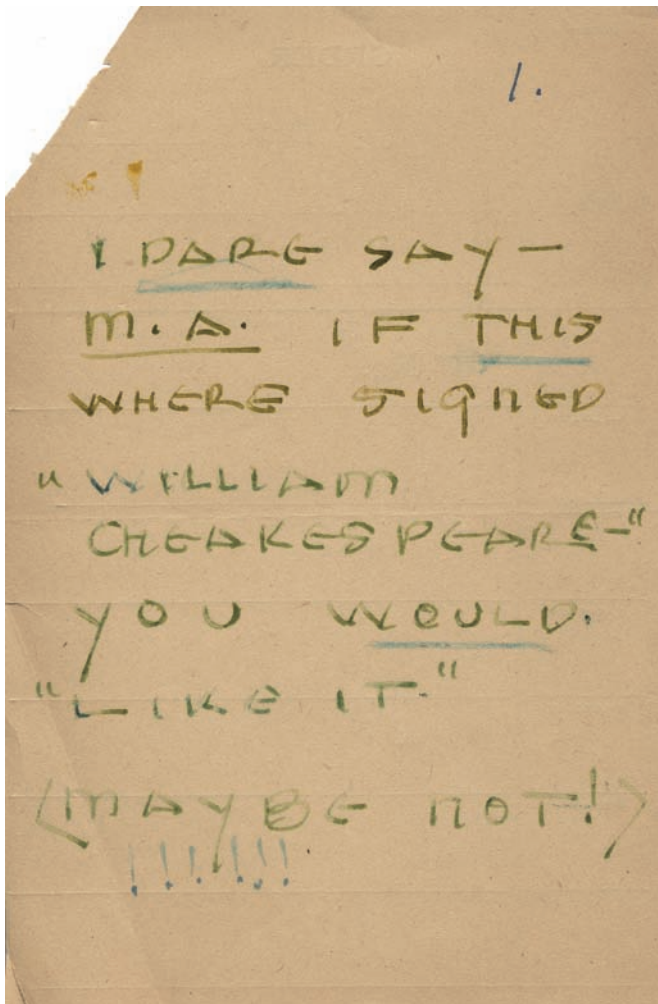 1.
I DARE SAY —
M.A. IF THIS
WHERE SIGNED
"WILLIAM
CHEAKESPEARE—"
YOU WOULD.
"LIKE IT."
(MAYBE NOT!)
!!!!!!